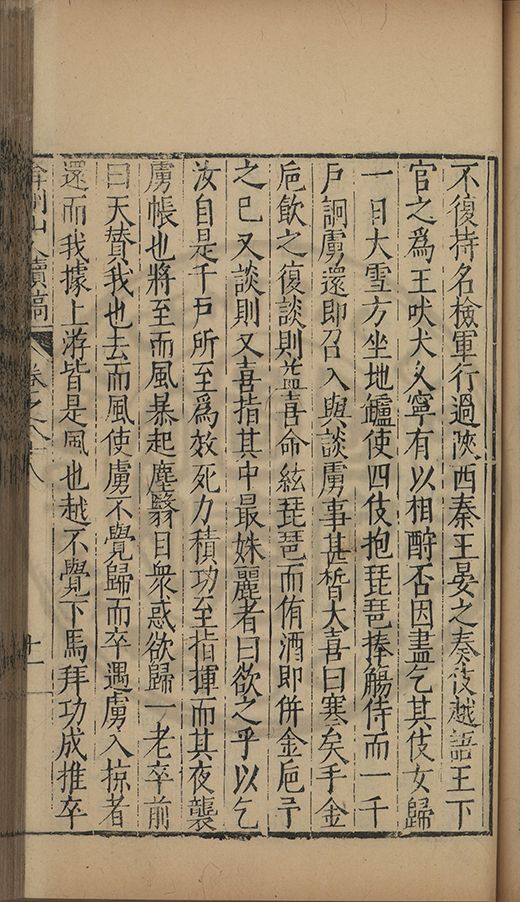 不復持名檢軍行過陜西秦王晏之奏伎越語王下
官之爲王吠犬久寧有以相酧否因盡乞其伎女歸
一日大雪方坐地鑪使四伎抱琵琶捧觴侍而一千
戸詗虜還即召入與談虜事甚晳大喜曰寒矣手金
巵飲之復談則益喜命絃琵琶而侑酒即併金巵予
之已又談則又喜指其中最姝麗者曰欲之乎以乞
汝自是千戸所至爲效死力積功至指揮而其夜襲
虜帳也將至而風暴起塵翳目衆惑欲歸一老卒前
曰天賛我也去而風使虜不覺歸而卒遇虜入掠者
還而我據上游皆是風也越不覺下馬拜功成推卒
弇州山人續稿 卷之八十八 十一